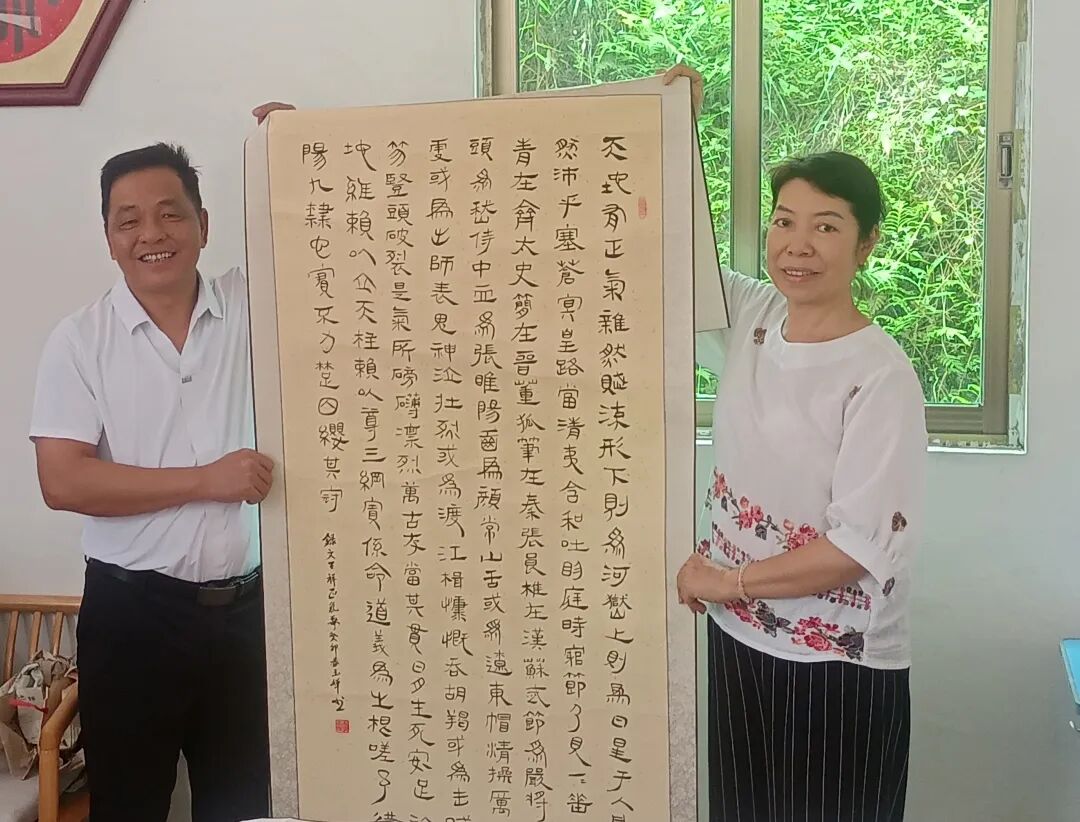 天地有正氣雜然賦流形下則為河嶽上則為日星于人曰
然沛乎塞蒼冥皇路當清夷含和吐明庭時窮節乃見一一垂
青在齊太史簡在晉董狐筆在秦張良椎在漢蘇武節為嚴將
頭為嵇侍中血為張睢陽齒為顏常山舌或為遼東帽清操厲
雪或為出師表鬼神泣壯烈或為渡江楫慷慨吞胡羯或為擊賊
笏豎頭破裂是氣所磅礴凜烈萬古存當其貫日月生死安足論
地維賴以立天柱賴以尊三綱實係命道義為之根嗟予遘
陽九隸也實不力楚囚纓其冠
錄文天祥正氣歌癸卯春